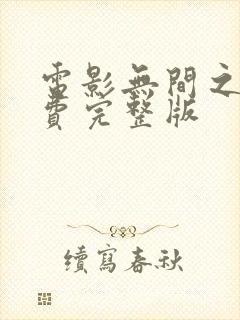 電影無間之
費完整版
續寫春秋